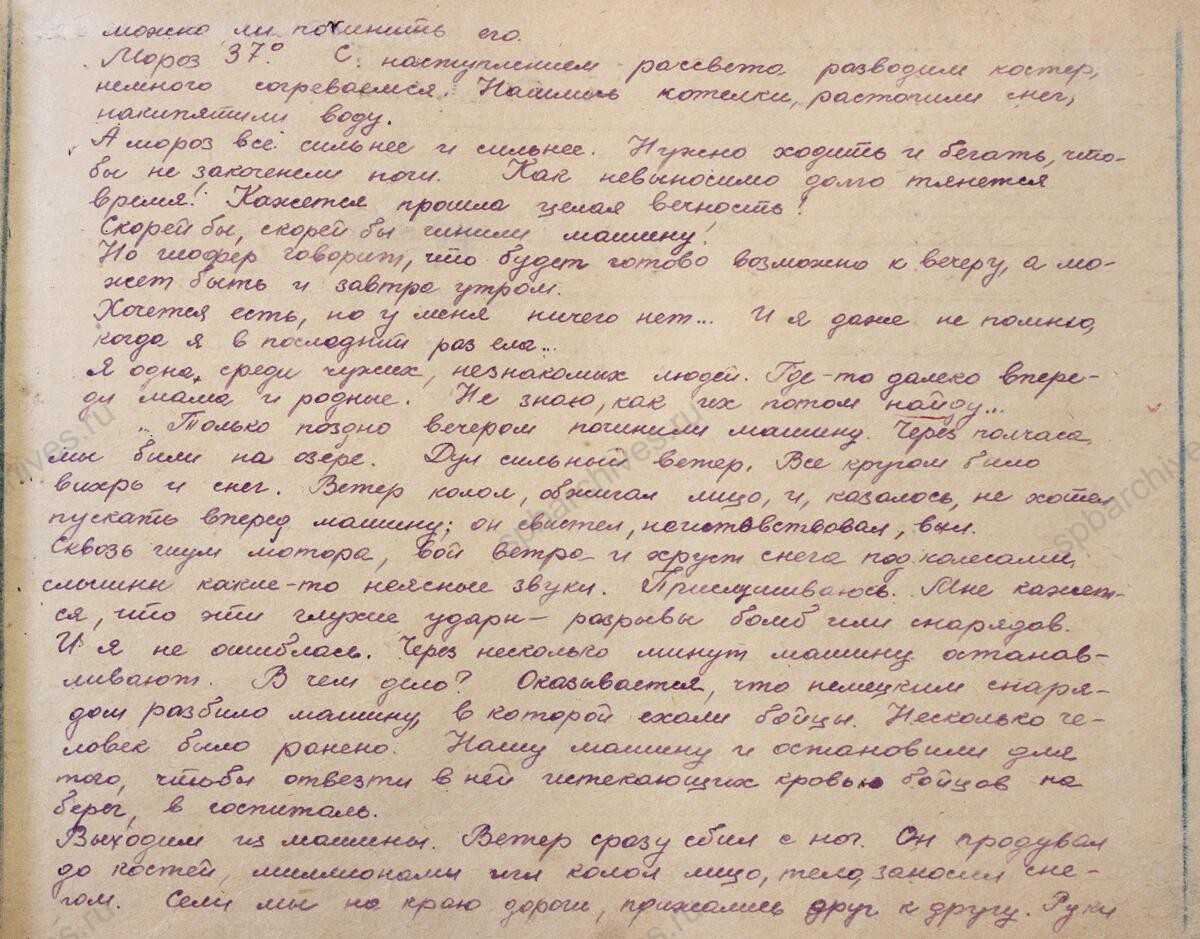 можно ли починить его.
Мороз 37°. С наступлением рассвета разводим костер,
немного согреваемся. Нашлись котелки, растопили снег,
накипятили воду.
А мороз всё сильнее и сильнее. Нужно ходить и бегать, что-
бы не закоченели ноги. Как невыносимо долго тянется
время! Кажется прошла целая вечность!
Скорей бы, скорей бы чинили машину!
Но шофер говорит, что будет готово возможно к вечеру, а мо-
жет быть и завтра утром.
Хочется есть, но у меня ничего нет... И я даже не помню,
когда я в последний раз ела...
Я одна, среди чужих, незнакомых людей. Где-то далеко впере-
ди мама и родные. Не знаю, как их потом найду...
.. Только поздно вечером починили машину. Через полчаса
мы были на озере. Дул сильный ветер. Все кругом было
вихрь и снег. Ветер колол, обжигал лицо, и, казалось, не хотел
пускать вперед машину; он свистел, неистовствовал, выл.
Сквозь шум мотора, вой ветра и хруст снега под колесами,
слышны какие-то неясные звуки. Прислушиваюсь. Мне кажет-
ся, что эти глухие удары – разрывы бомб или снарядов.
И я не ошиблась. Через несколько минут машину останав-
ливают. В чем дело? Оказывается, что немецким снаря-
дом разбило машину, в которой ехали бойцы. Несколько че-
ловек было ранено. Нашу машину и остановили для
того, чтобы отвезти в ней истекающих кровью бойцов на
берег, в госпиталь.
Выходим из машины. Ветер сразу сбил с ног. Он продувал
до костей, миллионами игл колол лицо, тело, заносил сне-
гом. Сели мы на краю дороги, прижались друг к другу. Руки
spbarchives.ru
spbarchives.ru
spbarchives